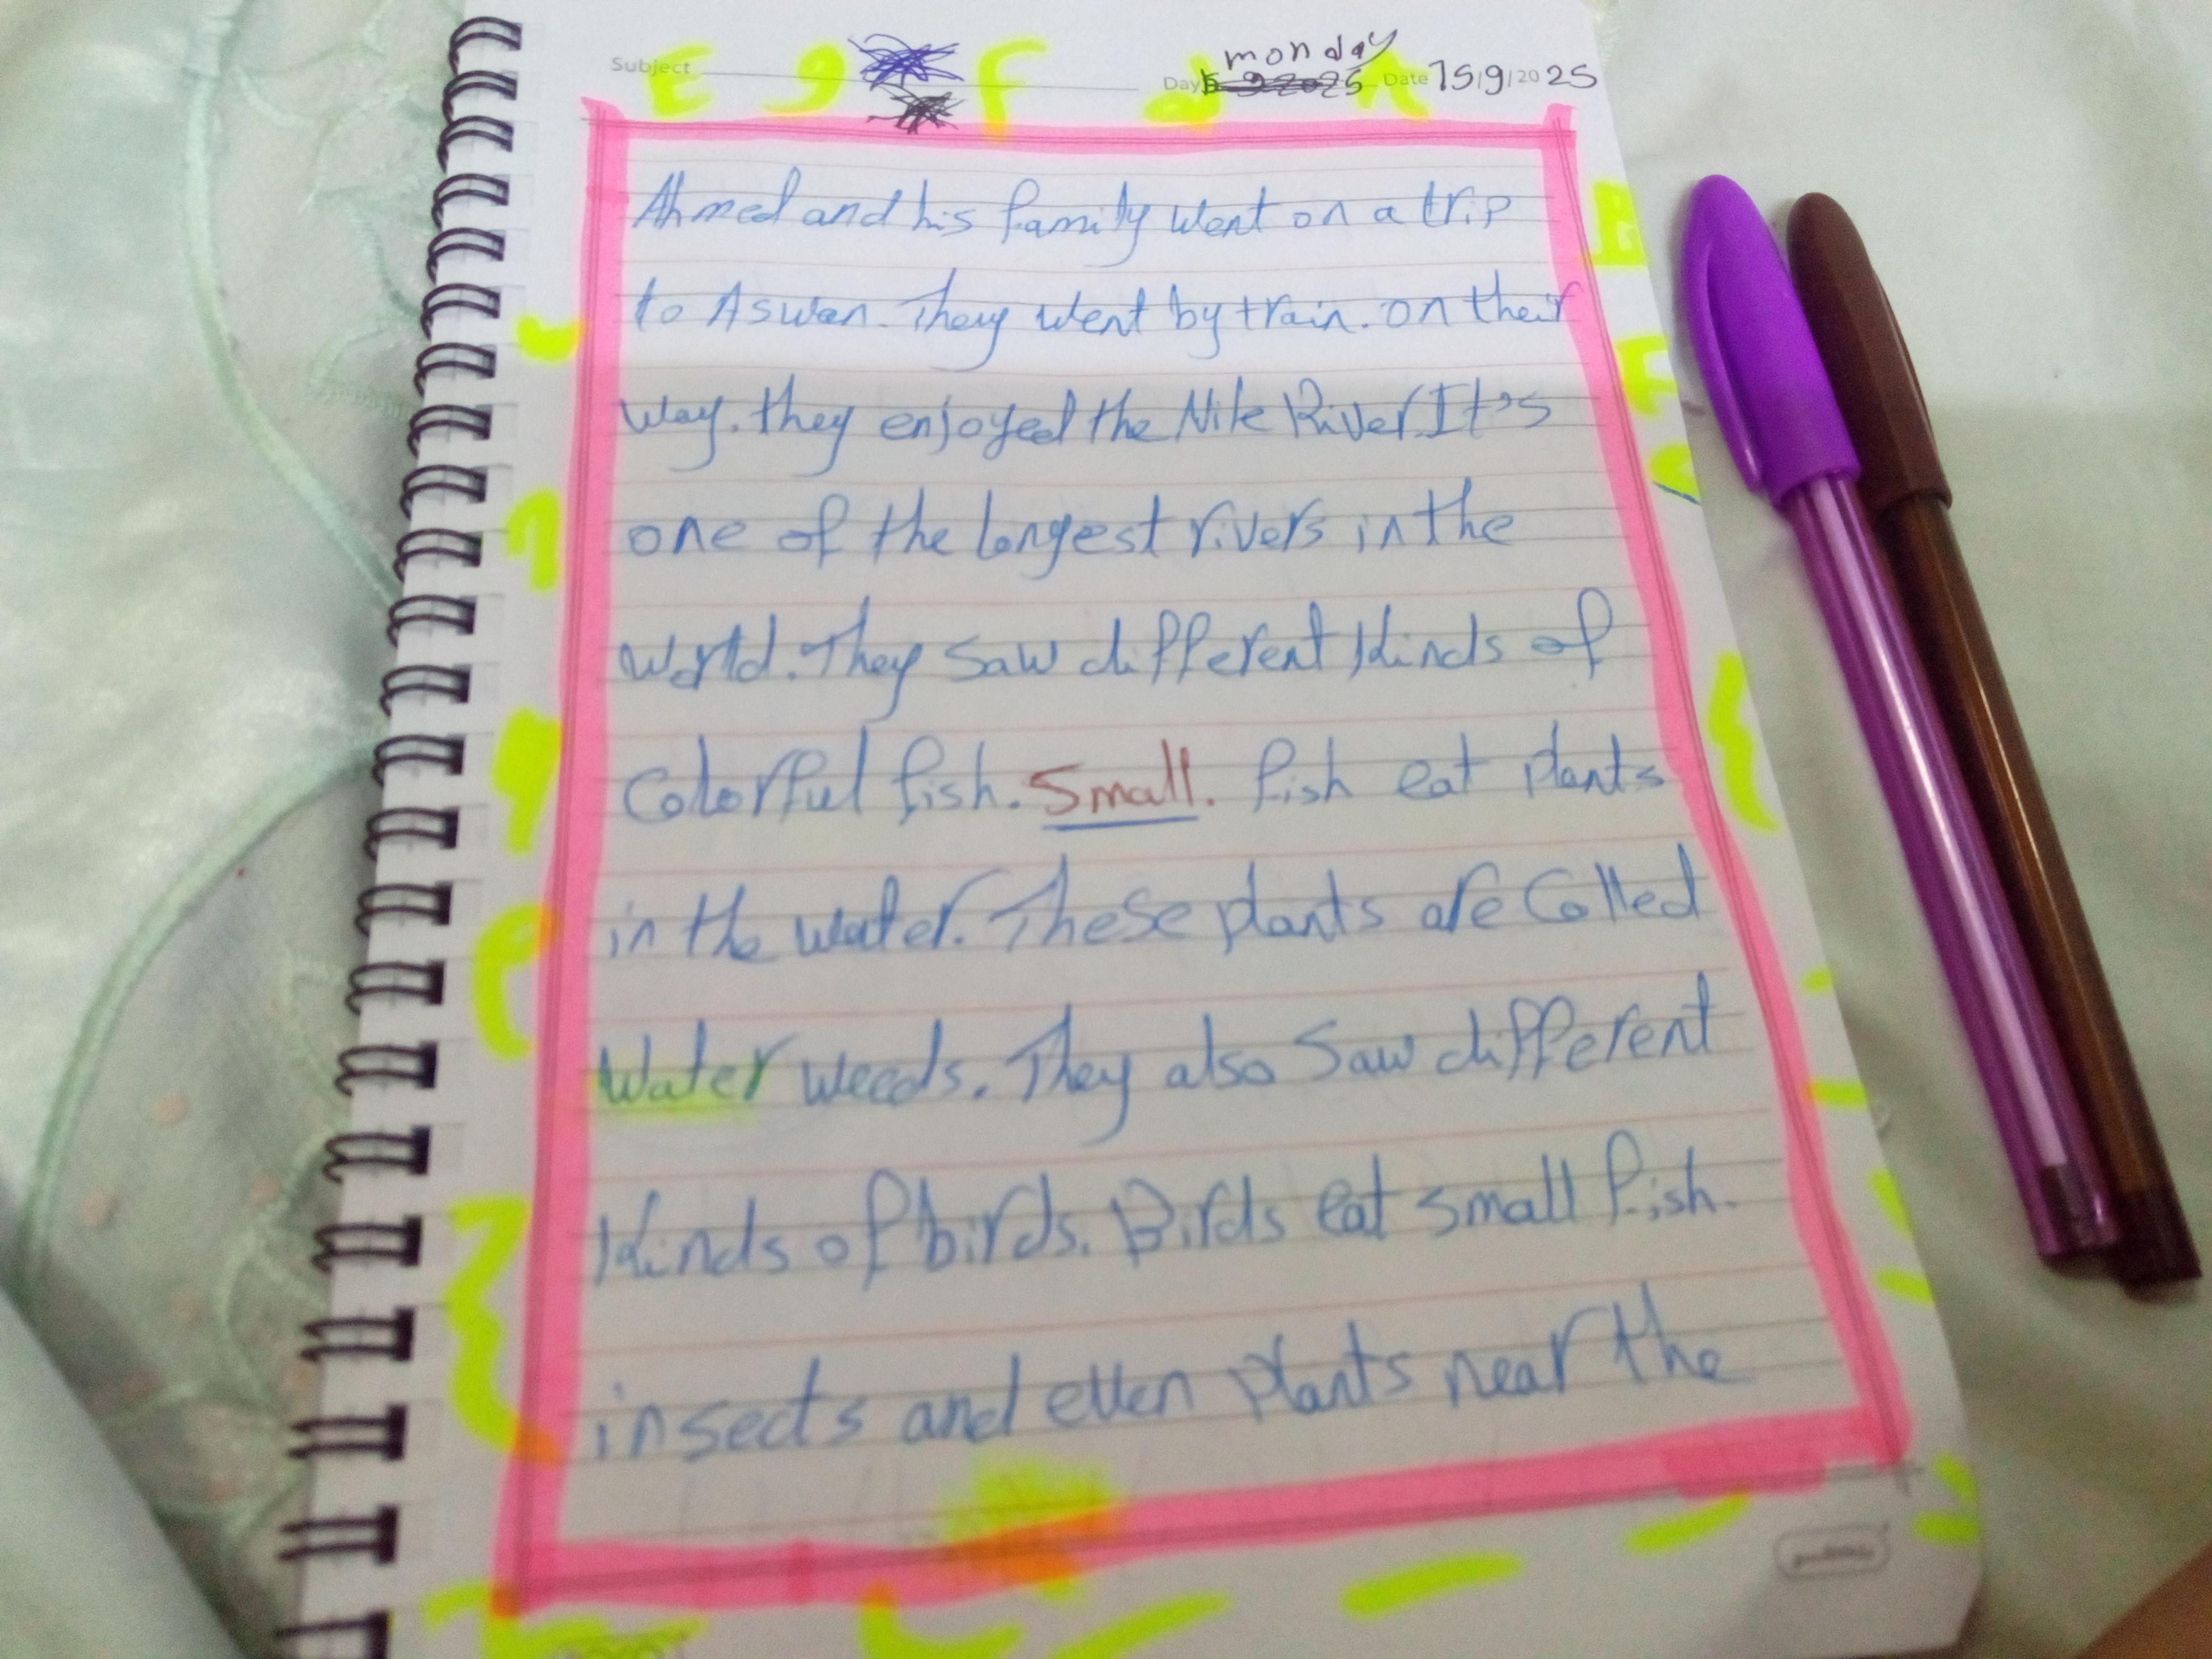 Subject
monday
Day Date 15/9/2025
Ahmed and his family went on a trip
to Aswan. They went by train. on their
way. they enjoyed the Nile River. It's
one of the longest rivers in the
world. They saw different kinds of
Colorful fish. Small. fish eat plants
in the water. These plants are Called
Water weeds. They also saw different
kinds of birds. Birds eat small fish.
insects and even plants near the